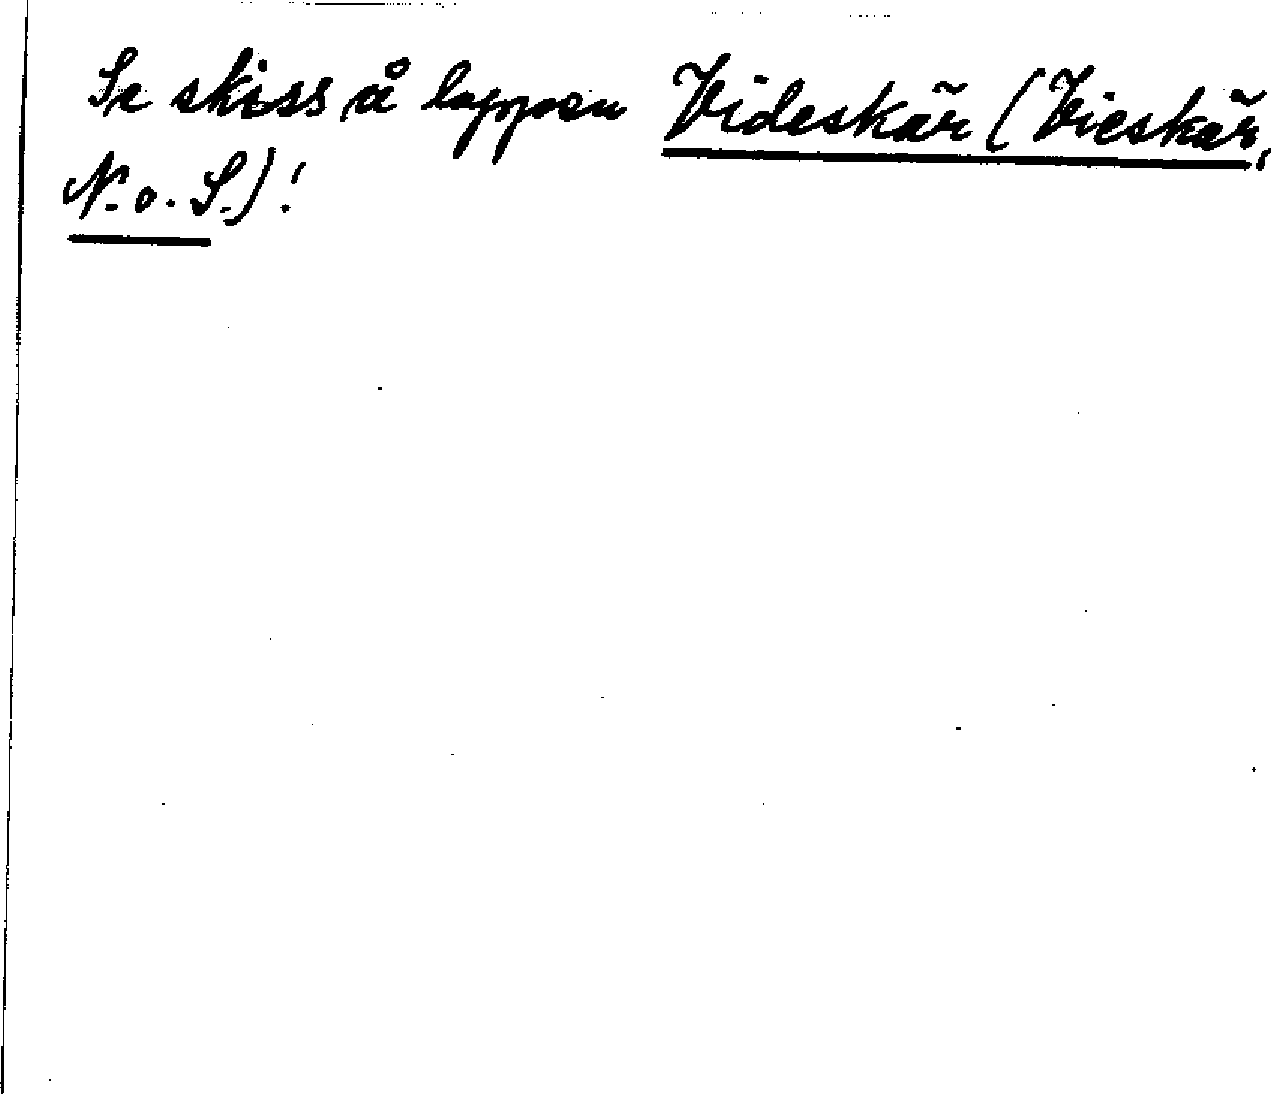 Se skiss å lappen Videskär (Vieskär,
N. o. S.)!